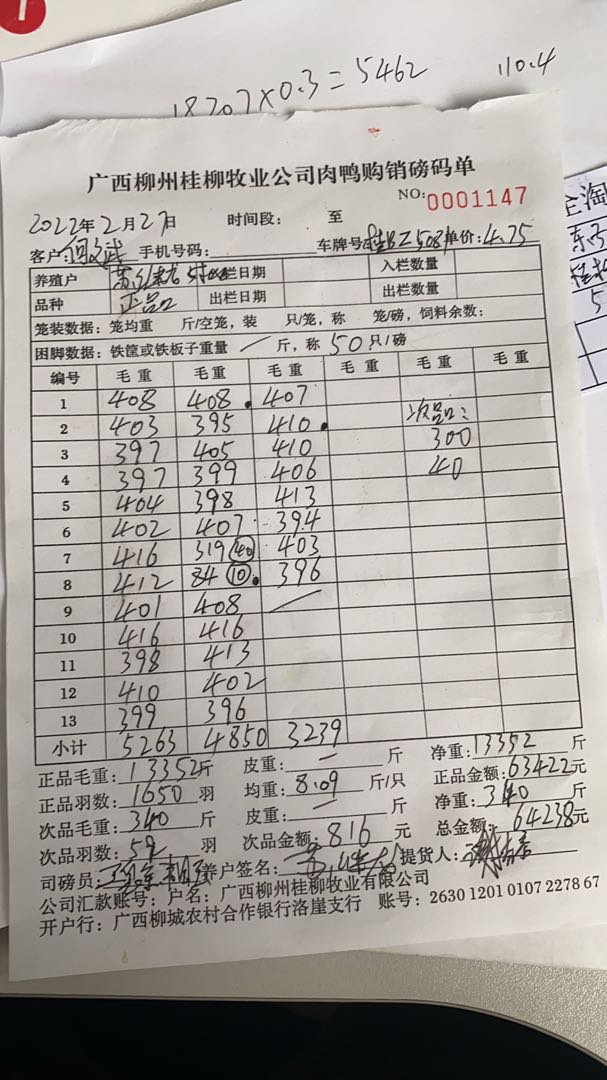 18207×0.3=5462 110.4
广西柳州桂柳牧业公司肉鸭购销磅码单
NO: 0001147
2022年2月27日 时间段: 至
客户: 手机号码: 车牌号 单价: 4.75
养殖户 入栏日期 入栏数量
品种 正品 出栏日期 出栏数量
笼装数据: 笼均重 斤/空笼, 装 只/笼, 称 笼/磅, 饲料余数:
困脚数据: 铁筐或铁板子重量 / 斤, 称 50只/磅
编号 毛重 毛重 毛重 毛重 毛重 毛重
1 408 408. 407
2 403 395 410. 次品:
3 397 405 410 300
4 397 399 406 40
5 404 398 413
6 402 407 394
7 416 319 40 403
8 412 84 10. 396
9 401 408 /
10 416 416
11 398 413
12 410 402
13 399 396
小计 5263 4850 3239
正品毛重: 13352斤 皮重: — 斤 净重: 13352 斤
正品羽数: 1650 羽 均重: 8.09 斤/只 正品金额: 63422元
次品毛重: 340 斤 皮重: — 斤 净重: 340 斤
次品羽数: 羽 次品金额: 816 元 总金额: 64238元
司磅员: 养户签名: 提货人:
公司汇款账号: 户名: 广西柳州桂柳牧业有限公司
开户行: 广西柳城农村合作银行洛崖支行 账号: 2630 1201 0107 2278 67